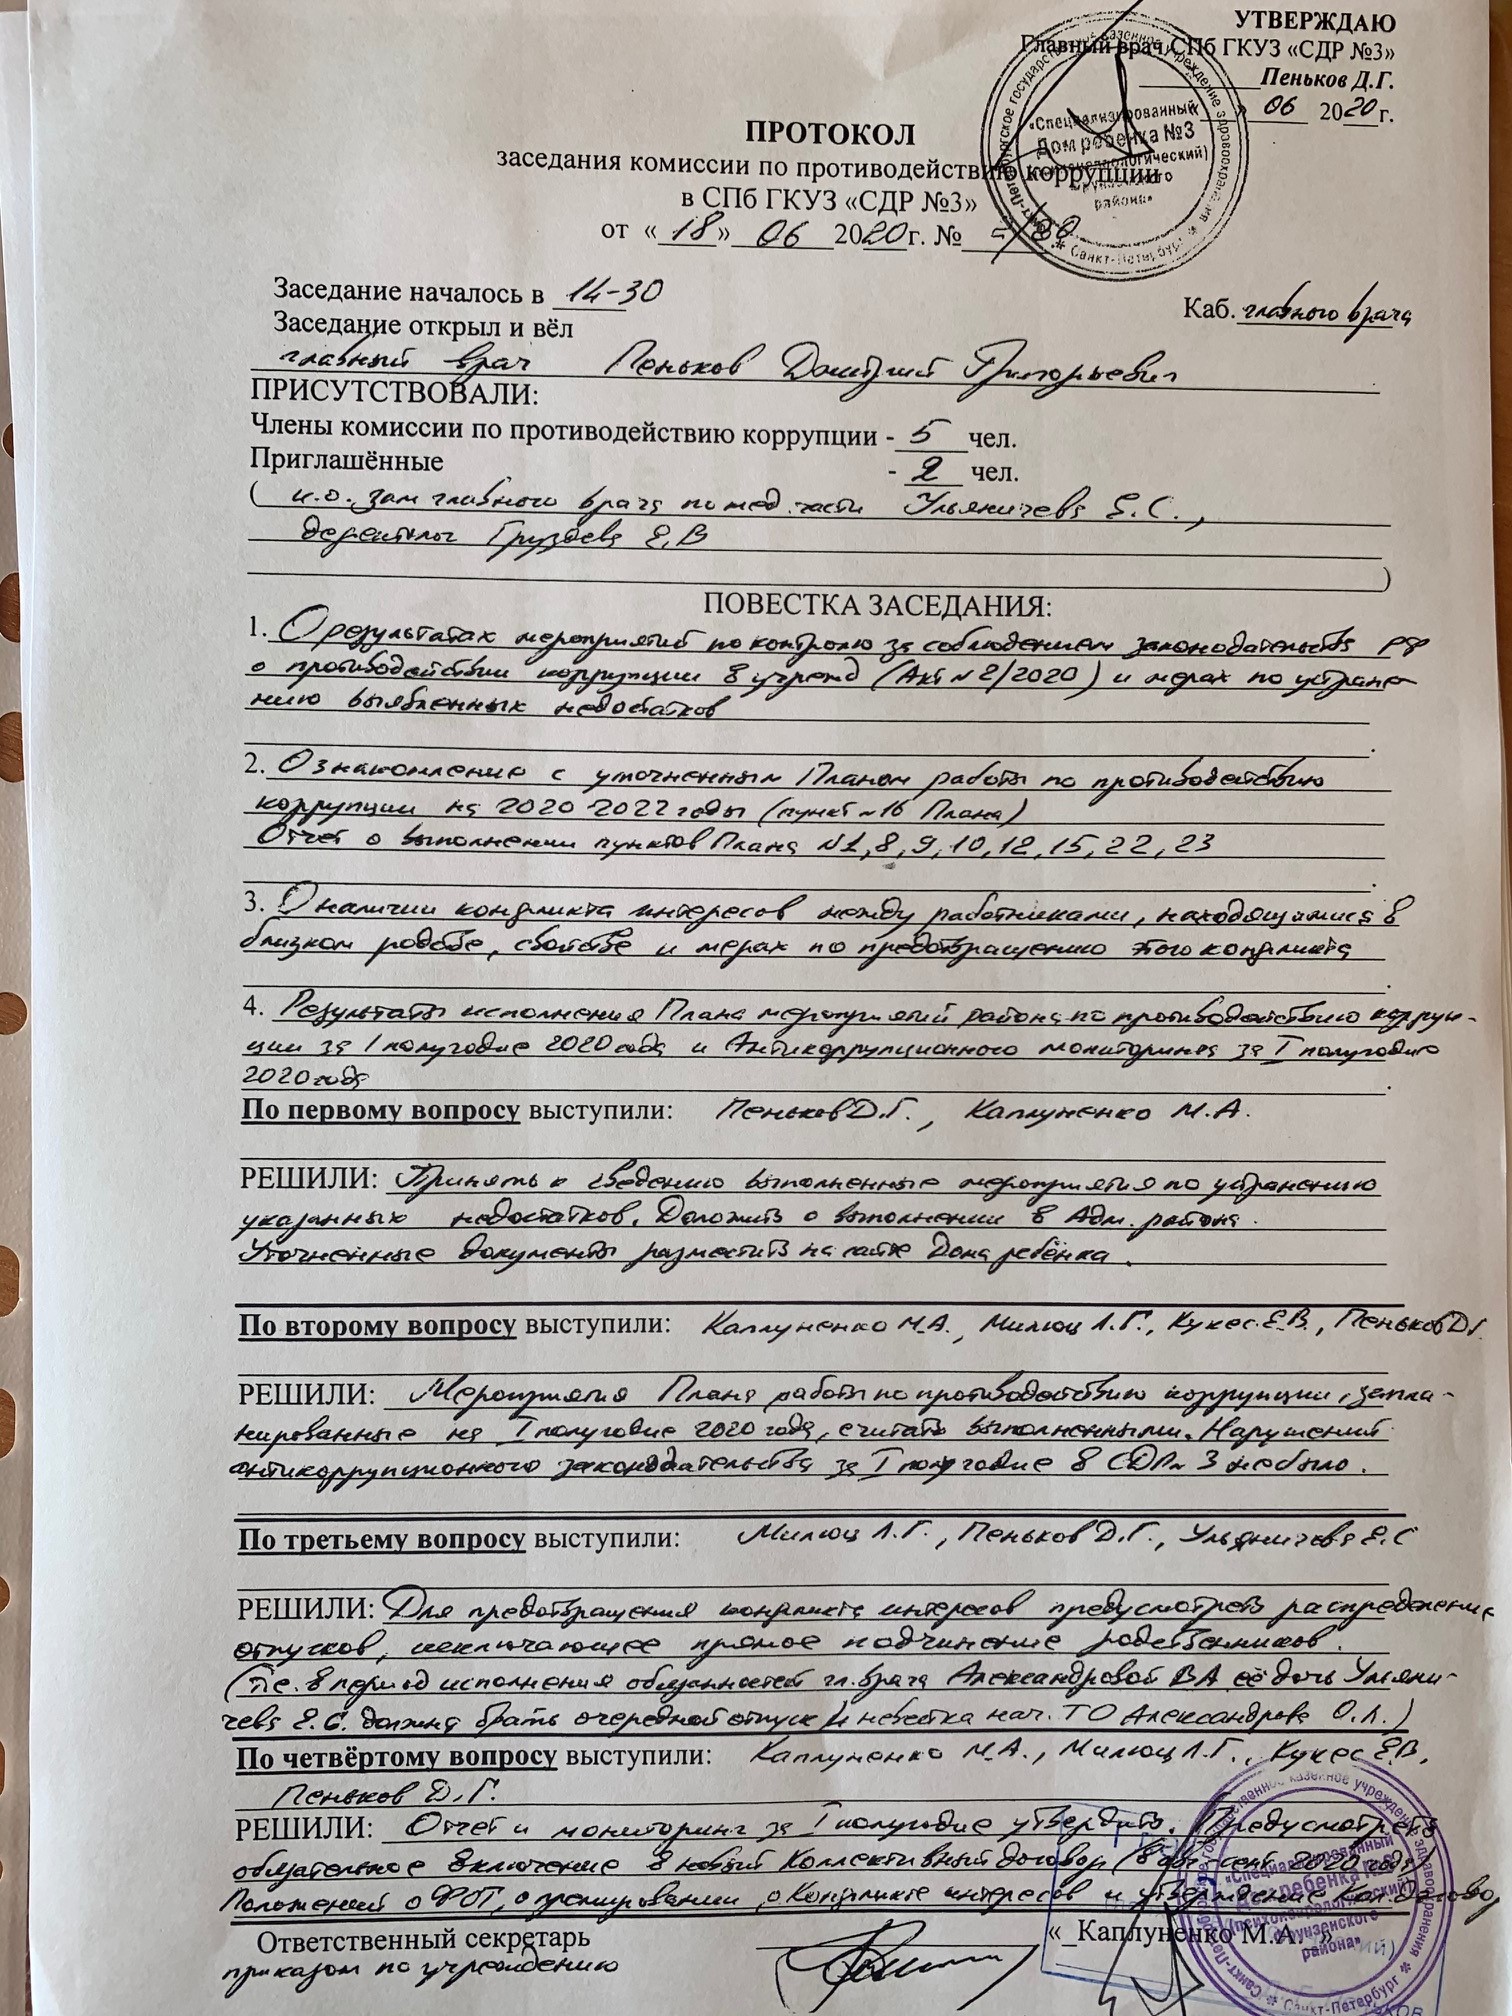 УТВЕРЖДАЮ
Главный врач СПб ГКУЗ «СДР №3»
Пеньков Д.Г.
06 2020г.
ПРОТОКОЛ
заседания комиссии по противодействию коррупции
в СПб ГКУЗ «СДР №3»
от «18» 06 2020г. №
Заседание началось в 14-30
Каб. главного врача
Заседание открыл и вёл
главный врач Пеньков Дмитрий Григорьевич
ПРИСУТСТВОВАЛИ:
Члены комиссии по противодействию коррупции - 5 чел.
Приглашённые - 2 чел.
( и.о. зам главного врача по мед. части Ульяничева Е.С.,
Груздева Е.В
)
ПОВЕСТКА ЗАСЕДАНИЯ:
1. О результатах мероприятий по контролю за соблюдением законодательства РФ
о противодействии коррупции в учрежд (Акт № 2/2020) и мерах по устране-
нию выявленных недостатков
2. Ознакомление с уточненным Планом работы по противодействию
коррупции на 2020-2022 годы (пункт № 16 Плана)
Отчет о выполнении пунктов Плана №1, 8, 9, 10, 12, 15, 22, 23
3. О наличии конфликта интересов между работниками, находящимися в
близком родстве, свойстве и мерах по предотвращению этого конфликта
4. Результаты исполнения Плана мероприятий района по противодействию корруп-
ции за I полугодие 2020 года и Антикоррупционного мониторинга за I полугодие
2020 года
По первому вопросу выступили: Пеньков Д.Г., Каплуненко М.А.
РЕШИЛИ: Принять к сведению выполненные мероприятия по устранению
указанных недостатков. Доложить о выполнении в Адм. района.
Уточненные документы разместить на сайте Дома ребёнка.
По второму вопросу выступили: Каплуненко М.А., Милюц Л.Г., Кукес Е.В., Пеньков Д.Г.
РЕШИЛИ: Мероприятия Плана работы по противодействию коррупции, запла-
нированные на I полугодие 2020 года, считать выполненными. Нарушений
антикоррупционного законодательства за I полугодие в СДР № 3 не было.
По третьему вопросу выступили: Милюц Л.Г., Пеньков Д.Г., Ульяничева Е.С
РЕШИЛИ: Для предотвращения конфликта интересов предусмотреть распределение
отпусков, исключающее прямое подчинение родственников.
(т.е. в период исполнения обязанностей гл. врача Александровой ВА её дочь Ульяни-
чева Е.С. должна брать очередной отпуск и невестка нач. ТО Александрова О.А.)
По четвёртому вопросу выступили: Каплуненко М.А., Милюц Л.Г., Кукес Е.В,
Пеньков Д.Г.
РЕШИЛИ: Отчет и мониторинг за I полугодие утвердить. Предусмотреть
обязательное включение в новый Коллективный договор (в авг-сент 2020 года)
Положений о ФОТ, о премировании, о Конфликте интересов и утверждение Кол. Договор
Ответственный секретарь «_Каплуненко М.А._»
приказом по учреждению
«Специализированный
Дом ребенка №3
(психоневрологический)
Фрунзенского
района»
Санкт-Петербург
«Специализированный
Дом ребенка №3
(психоневрологический)
Фрунзенского
района»
Санкт-Петербург